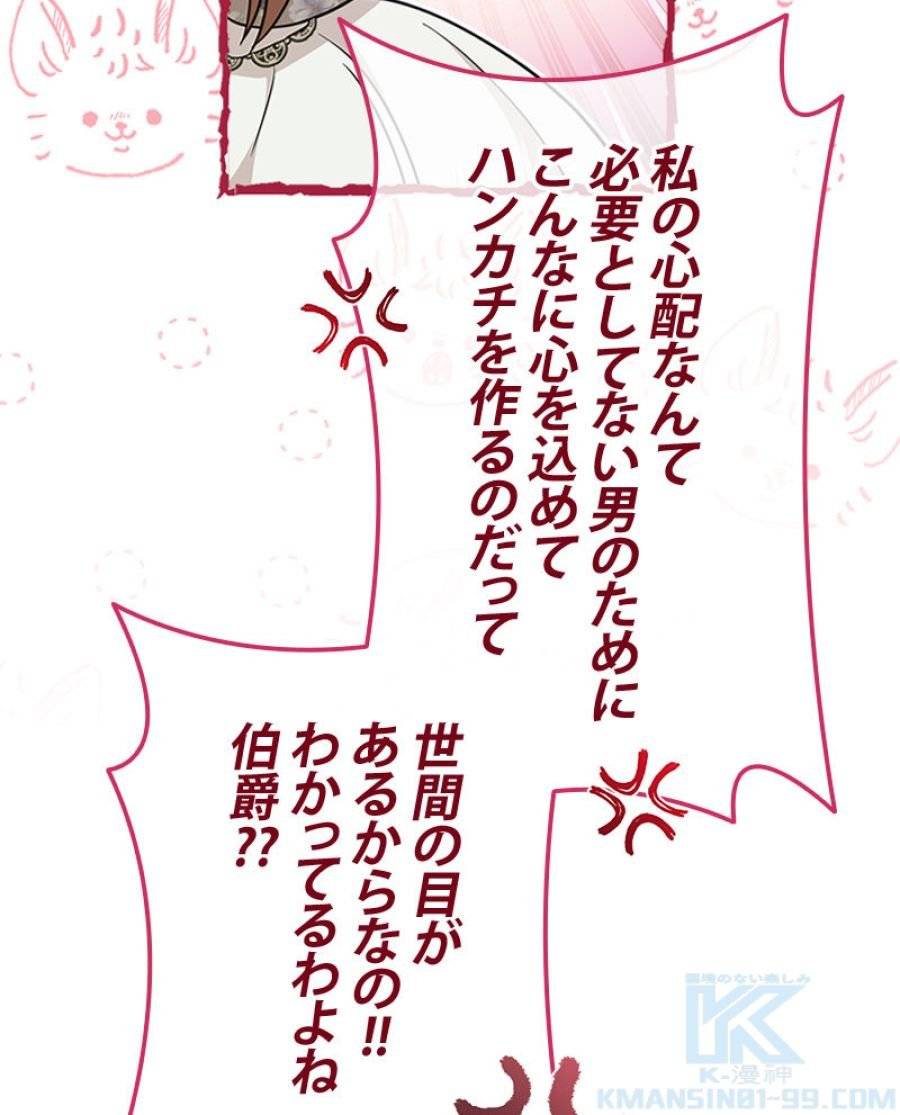 私の心配なんて
必要としてない男のために
こんなに心を込めて
ハンカチを作るのだって
世間の目が
あるからなの!!
わかってるわよね
伯爵??
K-漫神
KMANSIN01-99.COM